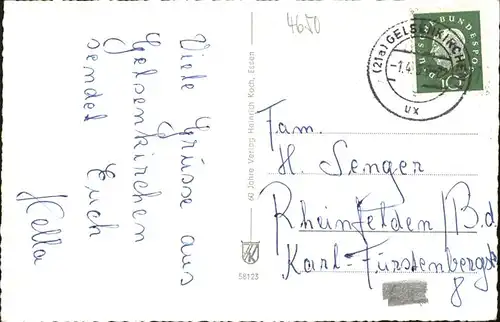 46.50
Viele Grüsse aus
Gelsenkirchen
sendet Euch
Hella
60 Jahre Verlag Heinrich Koch, Essen
58123
(21a) GELSENKIRCHEN
-1.4.
ux
DEUTSCHE BUNDESPOST
10
Fam.
H. Senger
Rheinfelden / B.d
Karl-Fürstenbergstr
8